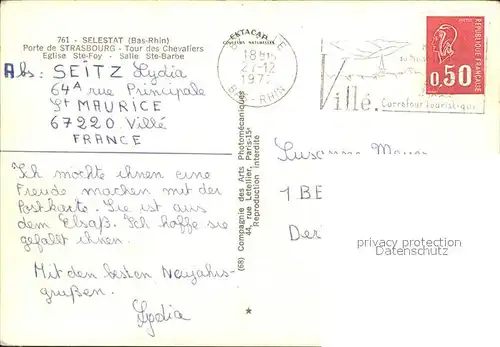 761 - SELESTAT (Bas-Rhin)
Porte de STRASBOURG - Tour des Chevaliers
Eglise Ste-Foy - Salle Ste-Barbe
Abs: SEITZ Lydia
64A rue Principale
St MAURICE
67220 Villé
FRANCE
Ich möchte ihnen eine
Freude machen mit der
Postkarte. Sie ist aus
dem Elsaß. Ich hoffe sie
gefällt ihnen.
Mit den besten Neujahrs-
grüßen.
Lydia
(68) Compagnie des Arts Photomécaniques
44, rue Letellier, Paris-15e
Reproduction interdite
ESTACAR
COULEURS NATURELLES
18H15
27-12
197
BAS-RHIN
Villé.
Carrefour touristique
RÉPUBLIQUE FRANÇAISE
0,50
Susanne
1 BE
Der
privacy protection
Datenschutz